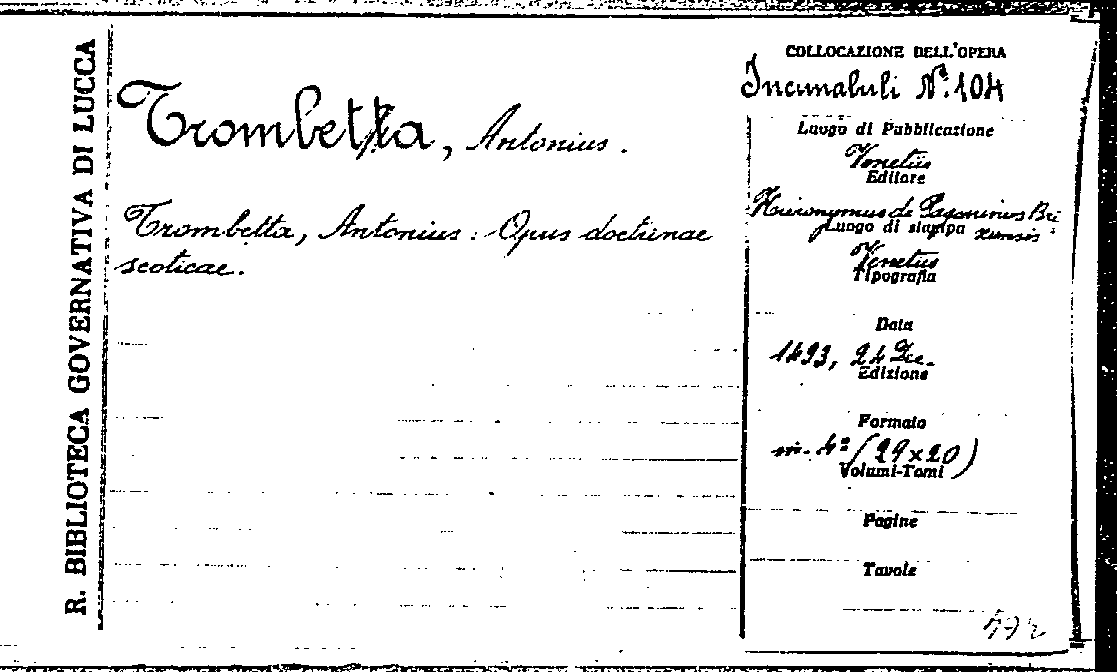 R. BIBLIOTECA GOVERNATIVA DI LUCCA
Trombetta, Antonius.
Trombetta, Antonius: Opus doctrinae
scoticae.
COLLOCAZIONE DELL'OPERA
Incunabuli Nº. 104
Luogo di Pubblicazione
Venetiis
Editore
Hieronymus de Paganinus Bri
xiensis
Luogo di stampa
Venetiis
Tipografia
Data
1493, 24 Dec.
Edizione
Formato
in-4º (29x20)
Volumi-Tomi
Pagine
Tavole